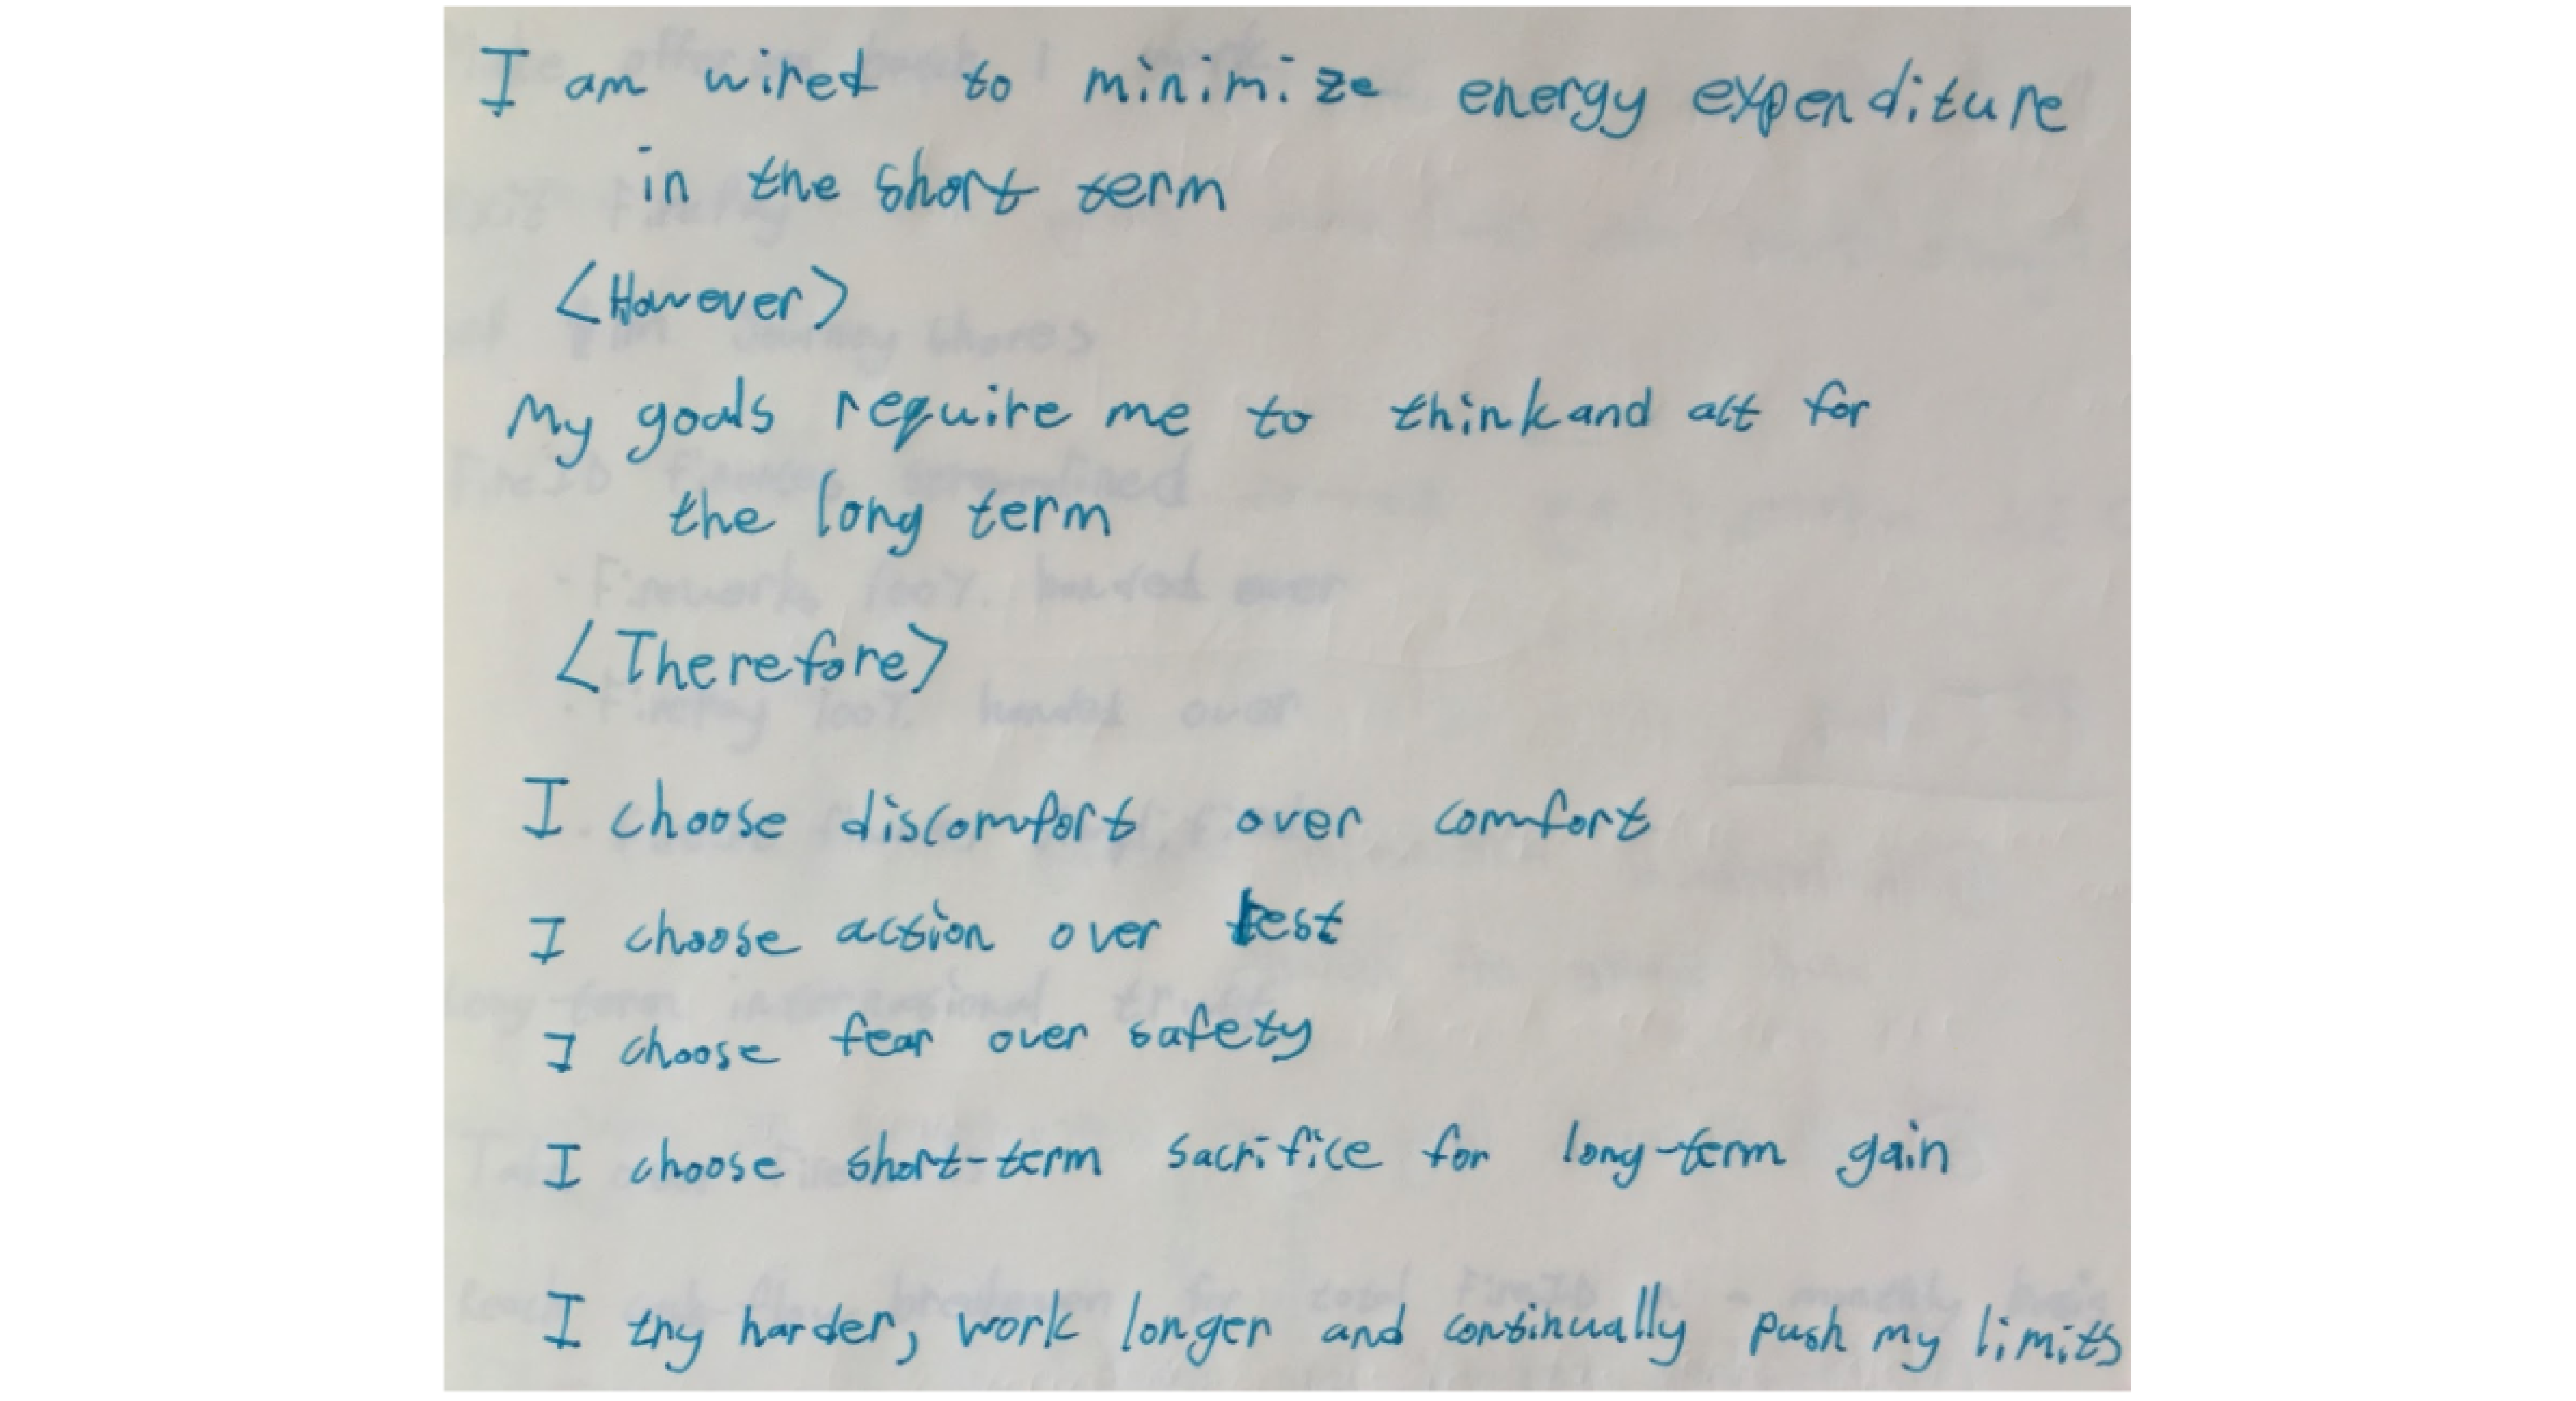 I am wired to minimize energy expenditure
in the short term
<However>
My goals require me to think and act for
the long term
<Therefore>
I choose discomfort over comfort
I choose action over rest
I choose fear over safety
I choose short-term sacrifice for long-term gain
I try harder, work longer and continually push my limits